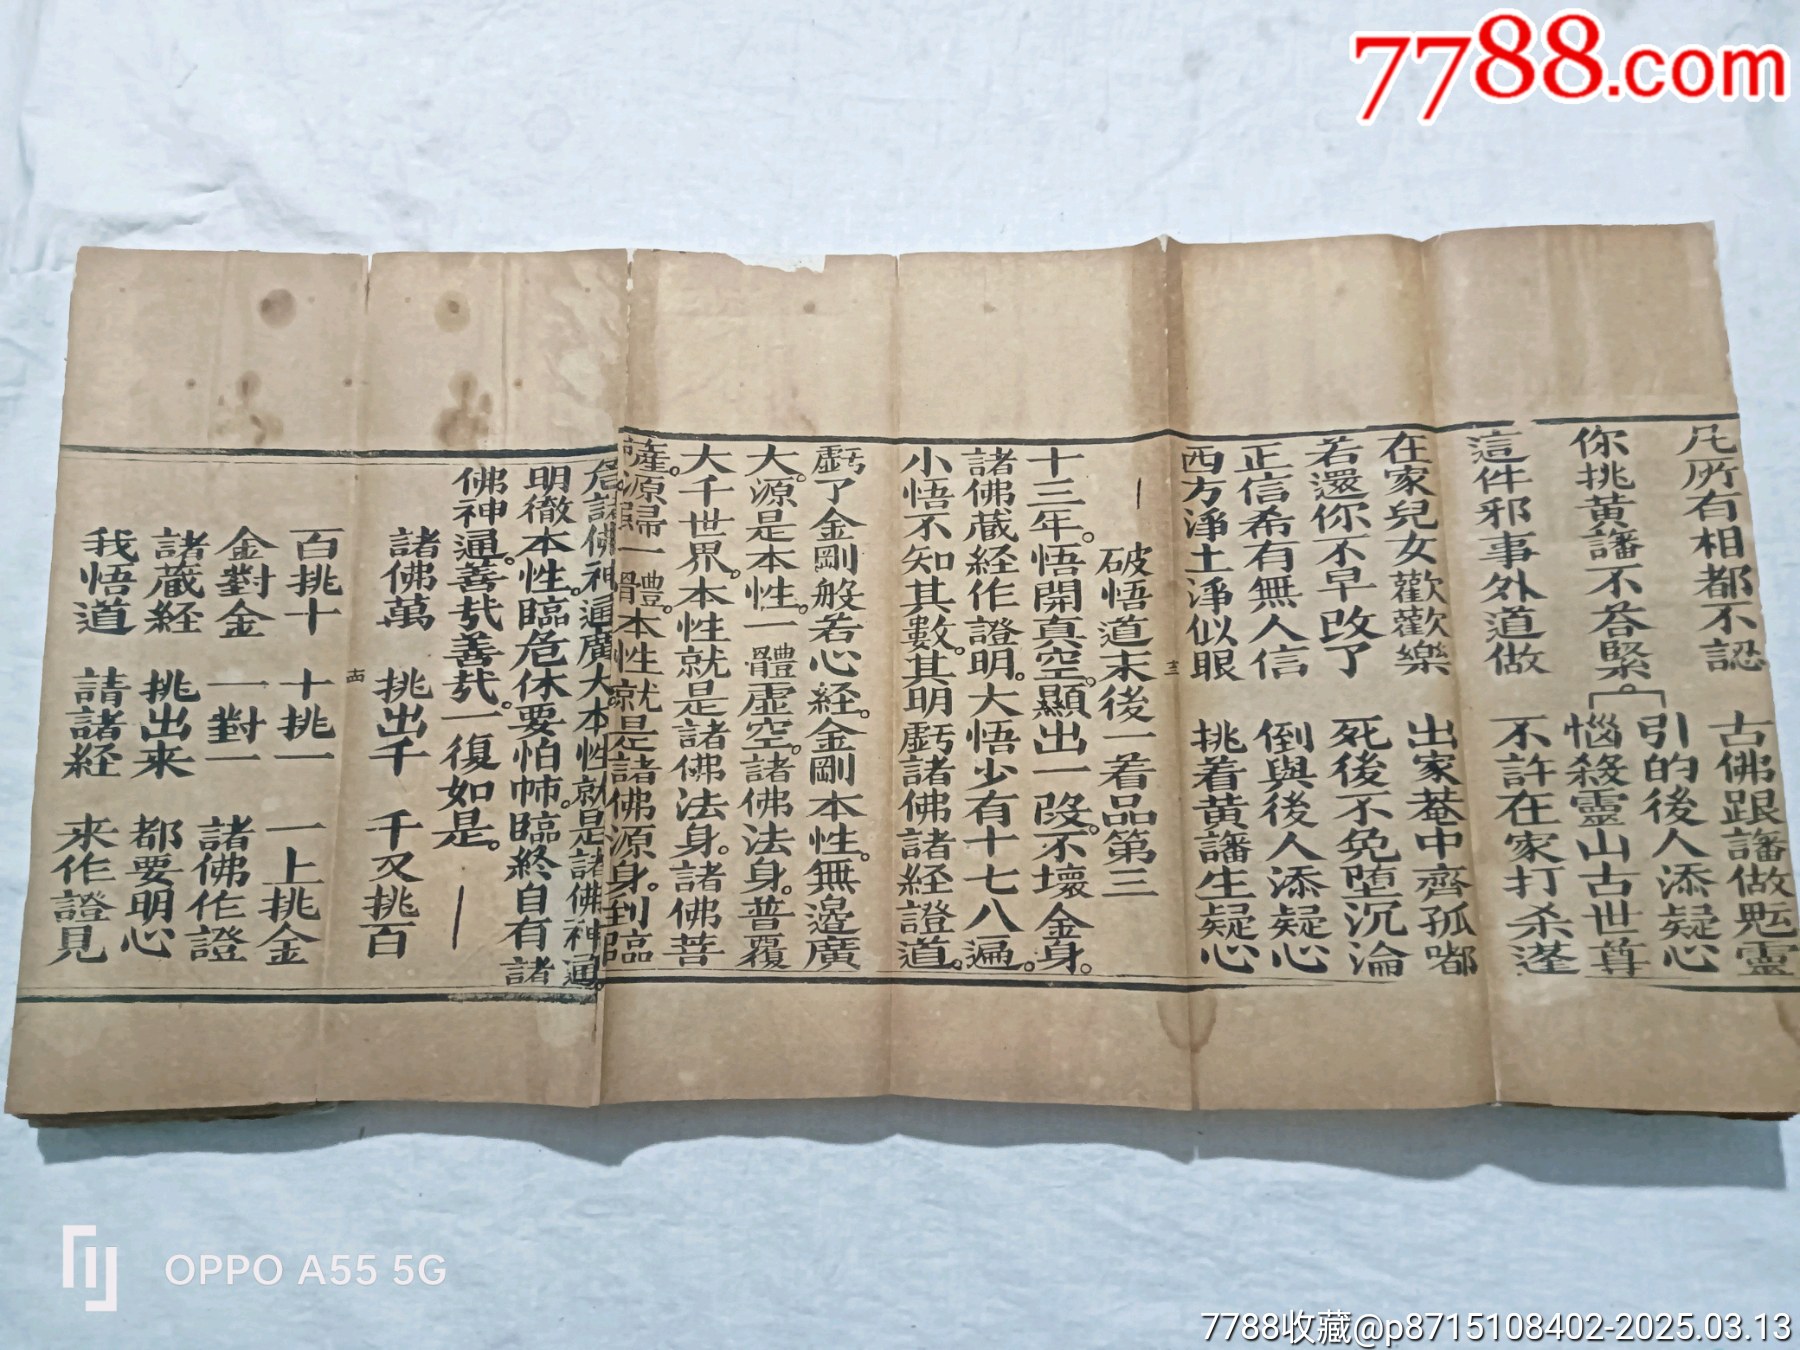 7788.com
凡所有相都不認 古佛跟讅做䰟靈
你挑黃讅不荅緊。 引的後人添疑心
惱殺靈山古世尊
這件邪事外道做 不許在家打杀蓬
在家兒女歡歡樂 出家菴中齋孤嘟
若還你不早改了 死後不免堕沉淪
正信希有無人信 倒與後人添疑心
西方淨土淨似眼 挑着黃讅生疑心
十三
破悟道末後一着品第三
十三年。悟開真空。顯出一段。不壞金身。
諸佛蔵経作證明。大悟少有十七八遍。
小悟不知其數。其明虧諸佛諸経證道。
虧了金剛般若心経。金剛本性。無邉廣
大。源是本性。一體虛空。諸佛法身。普覆
大千世界。本性就是諸佛法身。諸佛菩
薩。源歸一體。本性就是諸佛源身。到臨
危諸佛神通廣大本性就是諸佛神通。
明徹本性。臨危休要怕怖。臨終自有諸
佛神通。善㢤善㢤。一復如是。
十四
諸佛萬 挑出千 千又挑百
百挑十 十挑一 一上挑金
金對金 一對一 諸佛作證
諸蔵経 挑出来 都要明心
我悟道 請諸経 来作證見
OPPO A55 5G
7788收藏@p8715108402-2025.03.13